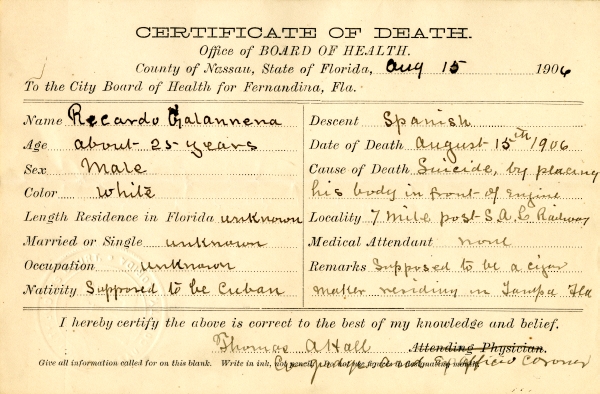 CERTIFICATE OF DEATH.
Office of BOARD OF HEALTH.
County of Nassau, State of Florida, Aug 15 1906
To the City Board of Health for Fernandina, Fla.
Name Recardo Galannena
Age about 25 years
Sex Male
Color White
Length Residence in Florida unknown
Married or Single unknown
Occupation unknown
Nativity Supposed to be Cuban
Descent Spanish
Date of Death August 15th 1906
Cause of Death Suicide, by placing
his body in front of Engine
Locality 7 mile post S.A.L. Railway
Medical Attendant none
Remarks Supposed to be a cigar
maker residing in Tampa Fla
I hereby certify the above is correct to the best of my knowledge and belief.
Thomas A Hall Attending Physician.
Give all information called for on this blank. Write in ink, not pencil.
Co Judge and Ex Officio Coroner